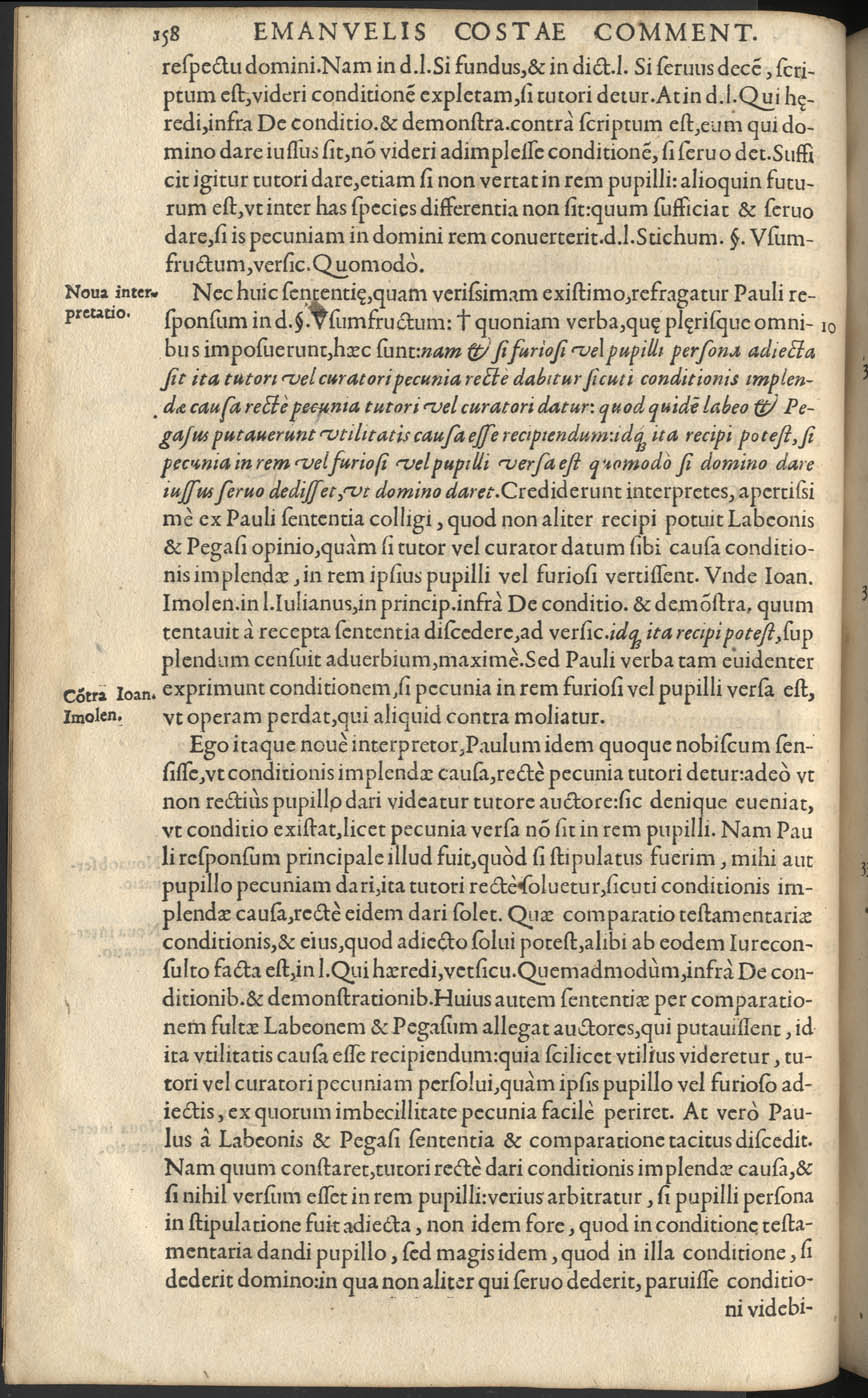 158 EMANVELIS COSTAE COMMENT.
reſpectu domini.Nam in d.l.Si fundus,& in dict.l. Si ſeruus decē, ſcri-
ptum eſt,videri conditionē expletam,ſi tutori detur.At in d.l.Qui hę-
redi,infra De conditio.& demonſtra.contrà ſcriptum eſt,eum qui do-
mino dare iuſſus ſit,nō videri adimpleſſe conditionē, ſi ſeruo det.Suffi
cit igitur tutori dare,etiam ſi non vertat in rem pupilli: alioquin futu-
rum eſt,vt inter has ſpecies differentia non ſit:quum ſufficiat & ſeruo
dare,ſi is pecuniam in domini rem conuerterit.d.l.Stichum. §. Vſum-
fructum,verſic.Quomodò.
Noua inter-
pretatio.
Nec huic ſententię,quam veriſsimam exiſtimo,refragatur Pauli re-
ſponſum in d.§.Vſumfructum: † quoniam verba,quę plęriſque omni- 10
bus impoſuerunt,hæc ſunt:nam & ſi furioſi vel pupilli perſona adiecta
ſit ita tutori vel curatori pecunia rectè dabitur ſicuti conditionis implen-
dæ cauſa rectè pecunia tutori vel curatori datur: quod quidē labeo & Pe-
gaſus putauerunt vtilitatis cauſa eſſe recipiendum:idq́ ita recipi poteſt, ſi
pecunia in rem vel furioſi vel pupilli verſa eſt quomodò ſi domino dare
iuſſus ſeruo dediſſet,vt domino daret.Crediderunt interpretes, apertiſsi
mè ex Pauli ſententia colligi, quod non aliter recipi potuit Labeonis
& Pegaſi opinio,quàm ſi tutor vel curator datum ſibi cauſa conditio-
nis implendæ, in rem ipſius pupilli vel furioſi vertiſſent. Vnde Ioan.
Imolen.in l.Iulianus,in princip.infrà De conditio. & demōſtra. quum
tentauit à recepta ſententia diſcedere,ad verſic.idq́ ita recipi poteſt,ſup
plendum cenſuit aduerbium,maximè.Sed Pauli verba tam euidenter
Cōtra Ioan.
Imolen.
exprimunt conditionem,ſi pecunia in rem furioſi vel pupilli verſa eſt,
vt operam perdat,qui aliquid contra moliatur.
Ego itaque nouè interpretor,Paulum idem quoque nobiſcum ſen-
ſiſſe,vt conditionis implendæ cauſa,rectè pecunia tutori detur:adeò vt
non rectiùs pupillo dari videatur tutore auctore:ſic denique eueniat,
vt conditio exiſtat,licet pecunia verſa nō ſit in rem pupilli. Nam Pau
li reſponſum principale illud fuit,quòd ſi ſtipulatus fuerim, mihi aut
pupillo pecuniam dari,ita tutori rectè ſoluetur,ſicuti conditionis im-
plendæ cauſa,rectè eidem dari ſolet. Quæ comparatio teſtamentariæ
conditionis,& eius,quod adiecto ſolui poteſt,alibi ab eodem Iurecon-
ſulto facta eſt,in l.Qui hæredi,verſicu.Quemadmodùm,infrà De con-
ditionib.& demonſtrationib.Huius autem ſententiæ per comparatio-
nem fultæ Labeonem & Pegaſum allegat auctores,qui putauiſſent, id
ita vtilitatis cauſa eſſe recipiendum:quia ſcilicet vtilius videretur, tu-
tori vel curatori pecuniam perſolui,quàm ipſis pupillo vel furioſo ad-
iectis, ex quorum imbecillitate pecunia facilè periret. At verò Pau-
lus à Labeonis & Pegaſi ſententia & comparatione tacitus diſcedit.
Nam quum conſtaret,tutori rectè dari conditionis implendæ cauſa,&
ſi nihil verſum eſſet in rem pupilli:verius arbitratur, ſi pupilli perſona
in ſtipulatione fuit adiecta, non idem fore, quod in conditione teſta-
mentaria dandi pupillo, ſed magis idem, quod in illa conditione, ſi
dederit domino:in qua non aliter qui ſeruo dederit, paruiſſe conditio-
ni videbi-